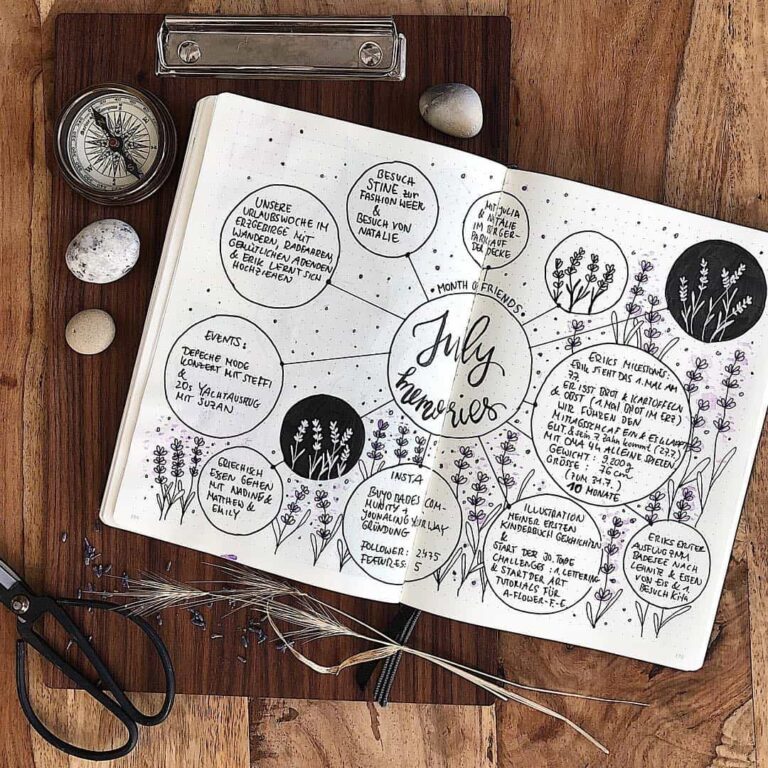 UNSERE
URLAUBSWOCHE IM
ERZGEBIRGE MIT
WANDERN, RADFAHREN,
GEMÜTLICHEN ABENDEN
& ERIK LERNT SICH
HOCHZIEHEN
BESUCH
STINE zur
FASHION WEEK
&
BESUCH VON
NATALIE
MIT JULIA
& NATALIE
IM BÜRGER-
PARK AUF
DER DECKE
MONTH OF FRIENDS
July
memories
EVENTS:
DEPECHE MODE
KONZERT MIT STEFFI
&
20s YACHTAUSFLUG
MIT SUZAN
GRIECHISCH
ESSEN GEHEN
MIT NADINE &
MATTHEW &
EMILY
INSTA
BUJO BABES COM-
MUNITY &
YOUR WAY
GRÜNDUNG
FOLLOWER: 2475
FEATURES: 5
ERIKS MILESTONES:
ERIK STEHT DAS 1. MAL AM
7.7.
ER ISST BROT & KARTOFFELN
& OBST (1. MAL BROT IM ERZ)
WIR FÜHREN DEN
MITTAGSCHLAF EIN & ES KLAPPT
GUT & sein 7. Zahn kommt (27.7.)
MIT OMA 4h ALLEINE SPIELEN
GEWICHT: 9.200g
GRÖSSE: 76 cm
(ZUM 31.7.)
10 MONATE
ILLUSTRATION
MEINER ERSTEN
KINDERBUCH GESCHICHTEN
&
START DER
CHALLENGES: 1. LETTERING
& START DER ART
TUTORIALS FÜR
A-FLOWER-F.-E.
ERIKS ERSTER
AUSFLUG ZUM
BADESEE NACH
LEHNITZ & ESSEN
VON EIS & 1.
BESUCH KITA